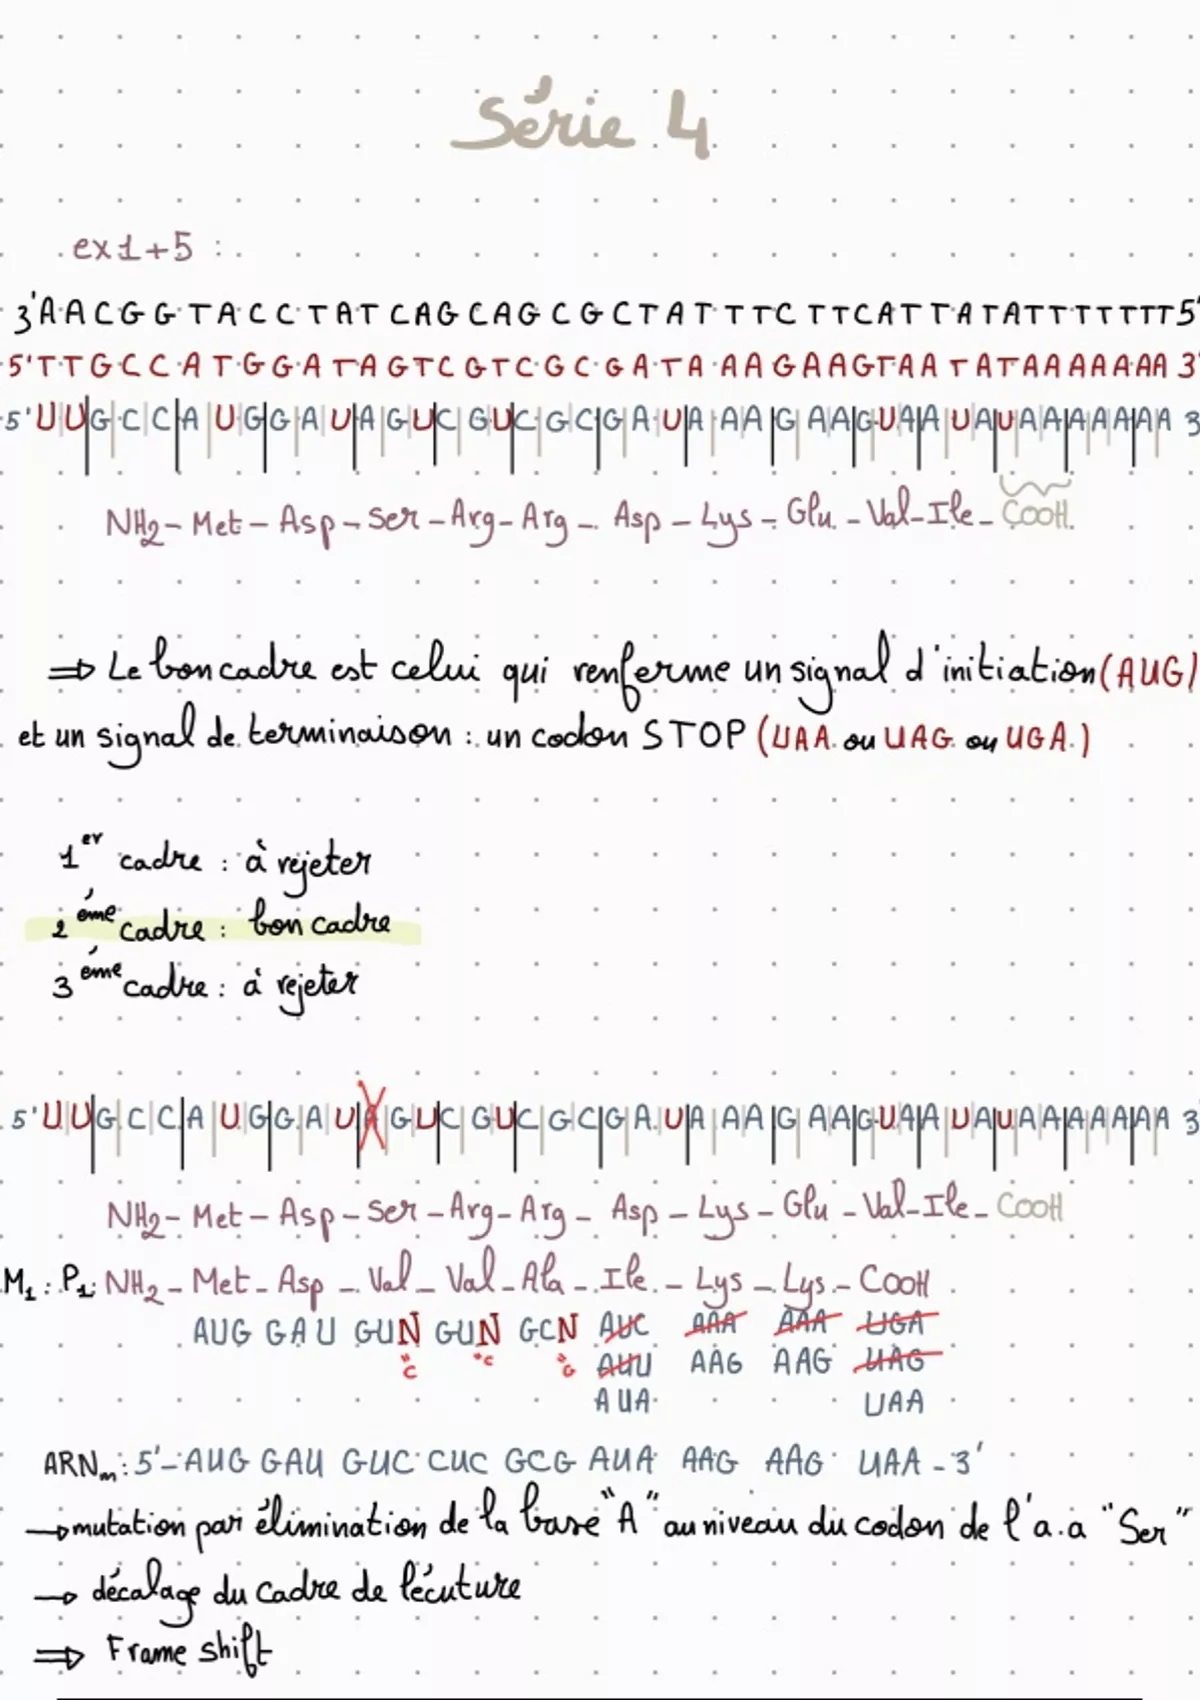 Série 4
ex1+5 :
3'AACGGTACCTATCAGCAGCGCTATTTCTTCATTATATTTTTTT5'
5'TTGCCATGGATAGTCGTCGCGATAAAGAAGTAATATAAAAAAA3'
5'UUGCCAUGGAUAGUCGUCGCGAUAAAGAAGUAAUAUAAAAAAA3
NH2-Met-Asp-Ser-Arg-Arg-Asp-Lys-Glu-Val-Ile-COOH
⇒ Le bon cadre est celui qui renferme un signal d'initiation (AUG)
et un signal de terminaison : un codon STOP (UAA ou UAG ou UGA)
1er cadre : à rejeter
2ème cadre : bon cadre
3ème cadre : à rejeter
5'UUGCCAUGGAUAGUCGUCGCGAUAAAGAAGUAAUAUAAAAAAA3'
NH2-Met-Asp-Ser-Arg-Arg-Asp-Lys-Glu-Val-Ile-COOH
M1 : P1: NH2-Met-Asp-Val-Val-Ala-Ile-Lys-Lys-COOH
AUG GAU GUN GUN GCN AUC AAA AAA UGA
"C "C "G AUU AAG AAG UAG
AUA UAA
ARNm : 5'-AUG GAU GUC CUC GCG AUA AAG AAG UAA-3'
→ mutation par élimination de la base "A" au niveau du codon de l'a.a "Ser"
→ décalage du cadre de lécuture
⇒ Frame shift